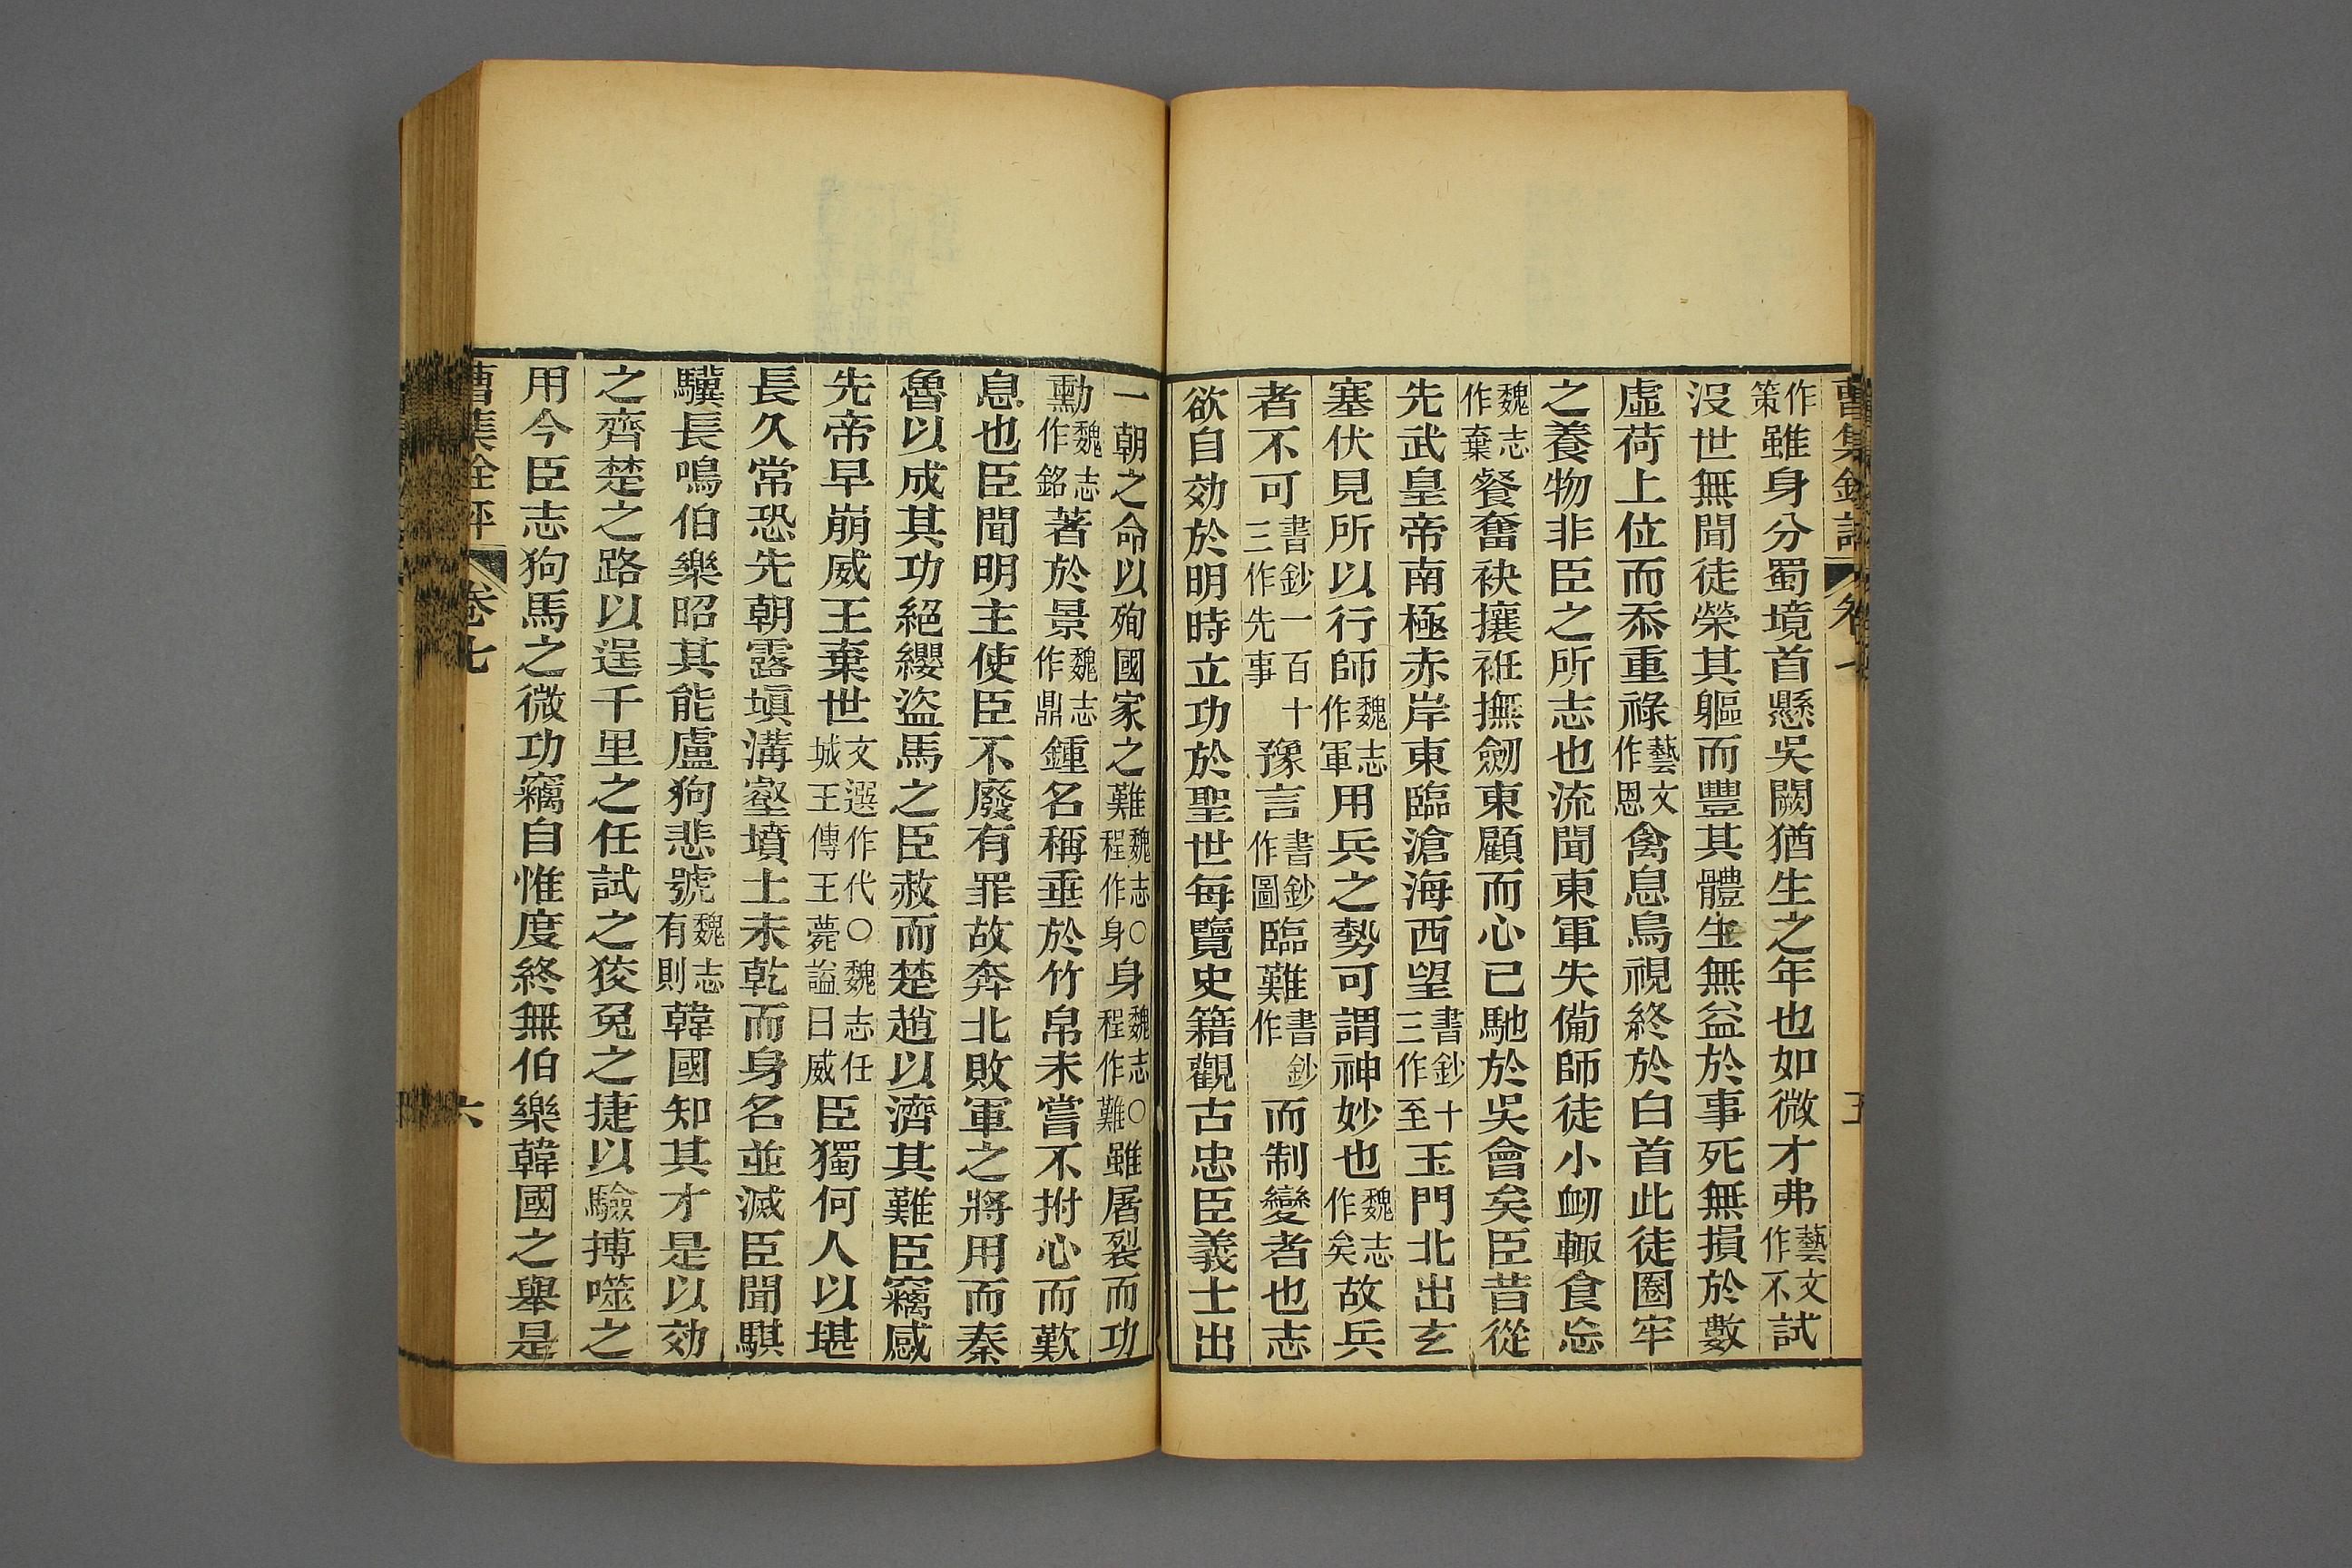 曹集銓評 卷七 五
作策雖身分蜀境首懸吳闕猶生之年也如微才弗藝文作不試
沒世無聞徒榮其軀而豐其體生無益於事死無損於數
虛荷上位而忝重祿藝文作恩禽息鳥視終於白首此徒圈牢
之養物非臣之所志也流聞東軍失備師徒小衂輙食忘
魏志作棄餐奮袂攘袵撫劒東顧而心已馳於吳會矣臣昔從
先武皇帝南極赤岸東臨滄海西望書鈔十三作至玉門北出玄
塞伏見所以行師魏志作軍用兵之勢可謂神妙也魏志作矣故兵
者不可書鈔一百十三作先事豫言書鈔作圖臨難書鈔作而制變者也志
欲自効於明時立功於聖世每覽史籍觀古忠臣義士出
一朝之命以殉國家之難魏志程作身○身魏志程作難○雖屠裂而功
勳魏志作銘著於景魏志作鼎鍾名稱垂於竹帛未嘗不拊心而歎
息也臣聞明主使臣不廢有罪故奔北敗軍之將用而秦
魯以成其功絕纓盜馬之臣赦而楚趙以濟其難臣竊感
先帝早崩威王棄世文選作代○魏志任城王傳王薨謚曰威臣獨何人以堪
長久常恐先朝露塡溝壑墳土未乾而身名並滅臣聞騏
驥長鳴伯樂昭其能盧狗悲號魏志有則韓國知其才是以効
之齊楚之路以逞千里之任試之狡兔之捷以驗搏噬之
用今臣志狗馬之微功竊自惟度終無伯樂韓國之舉是
曹集銓評 卷七 六